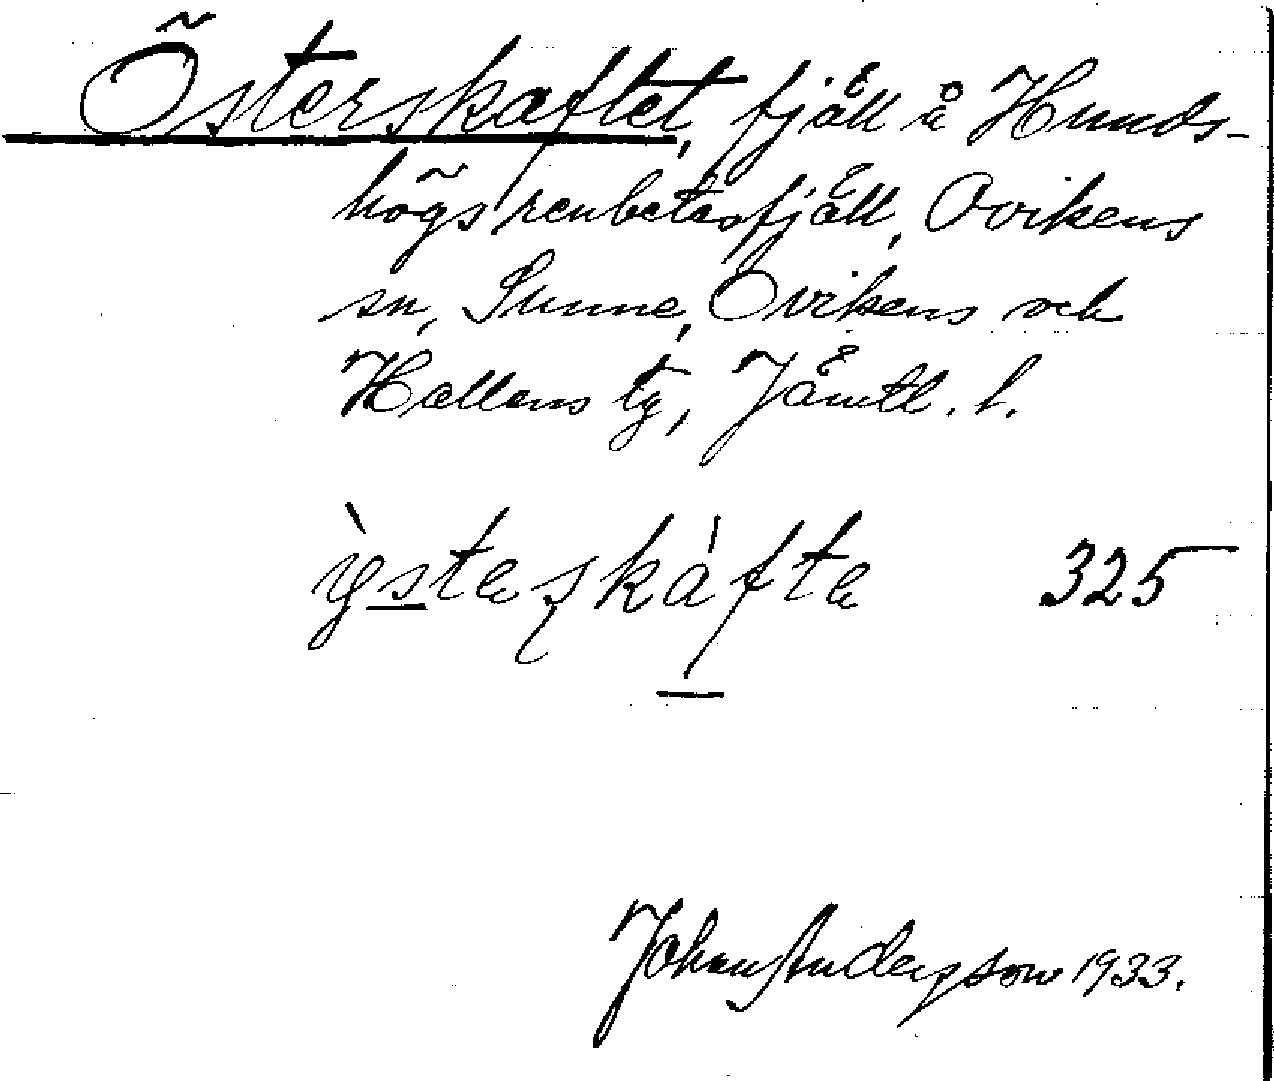 Österskaftet, fjäll å Hunds-
högs renbetesfjäll, Ovikens
sn, Sunne, Ovikens och
Hallens tg, Jämtl. l.
ỳsteʂkáfte 325
Johan Andersson 1933.